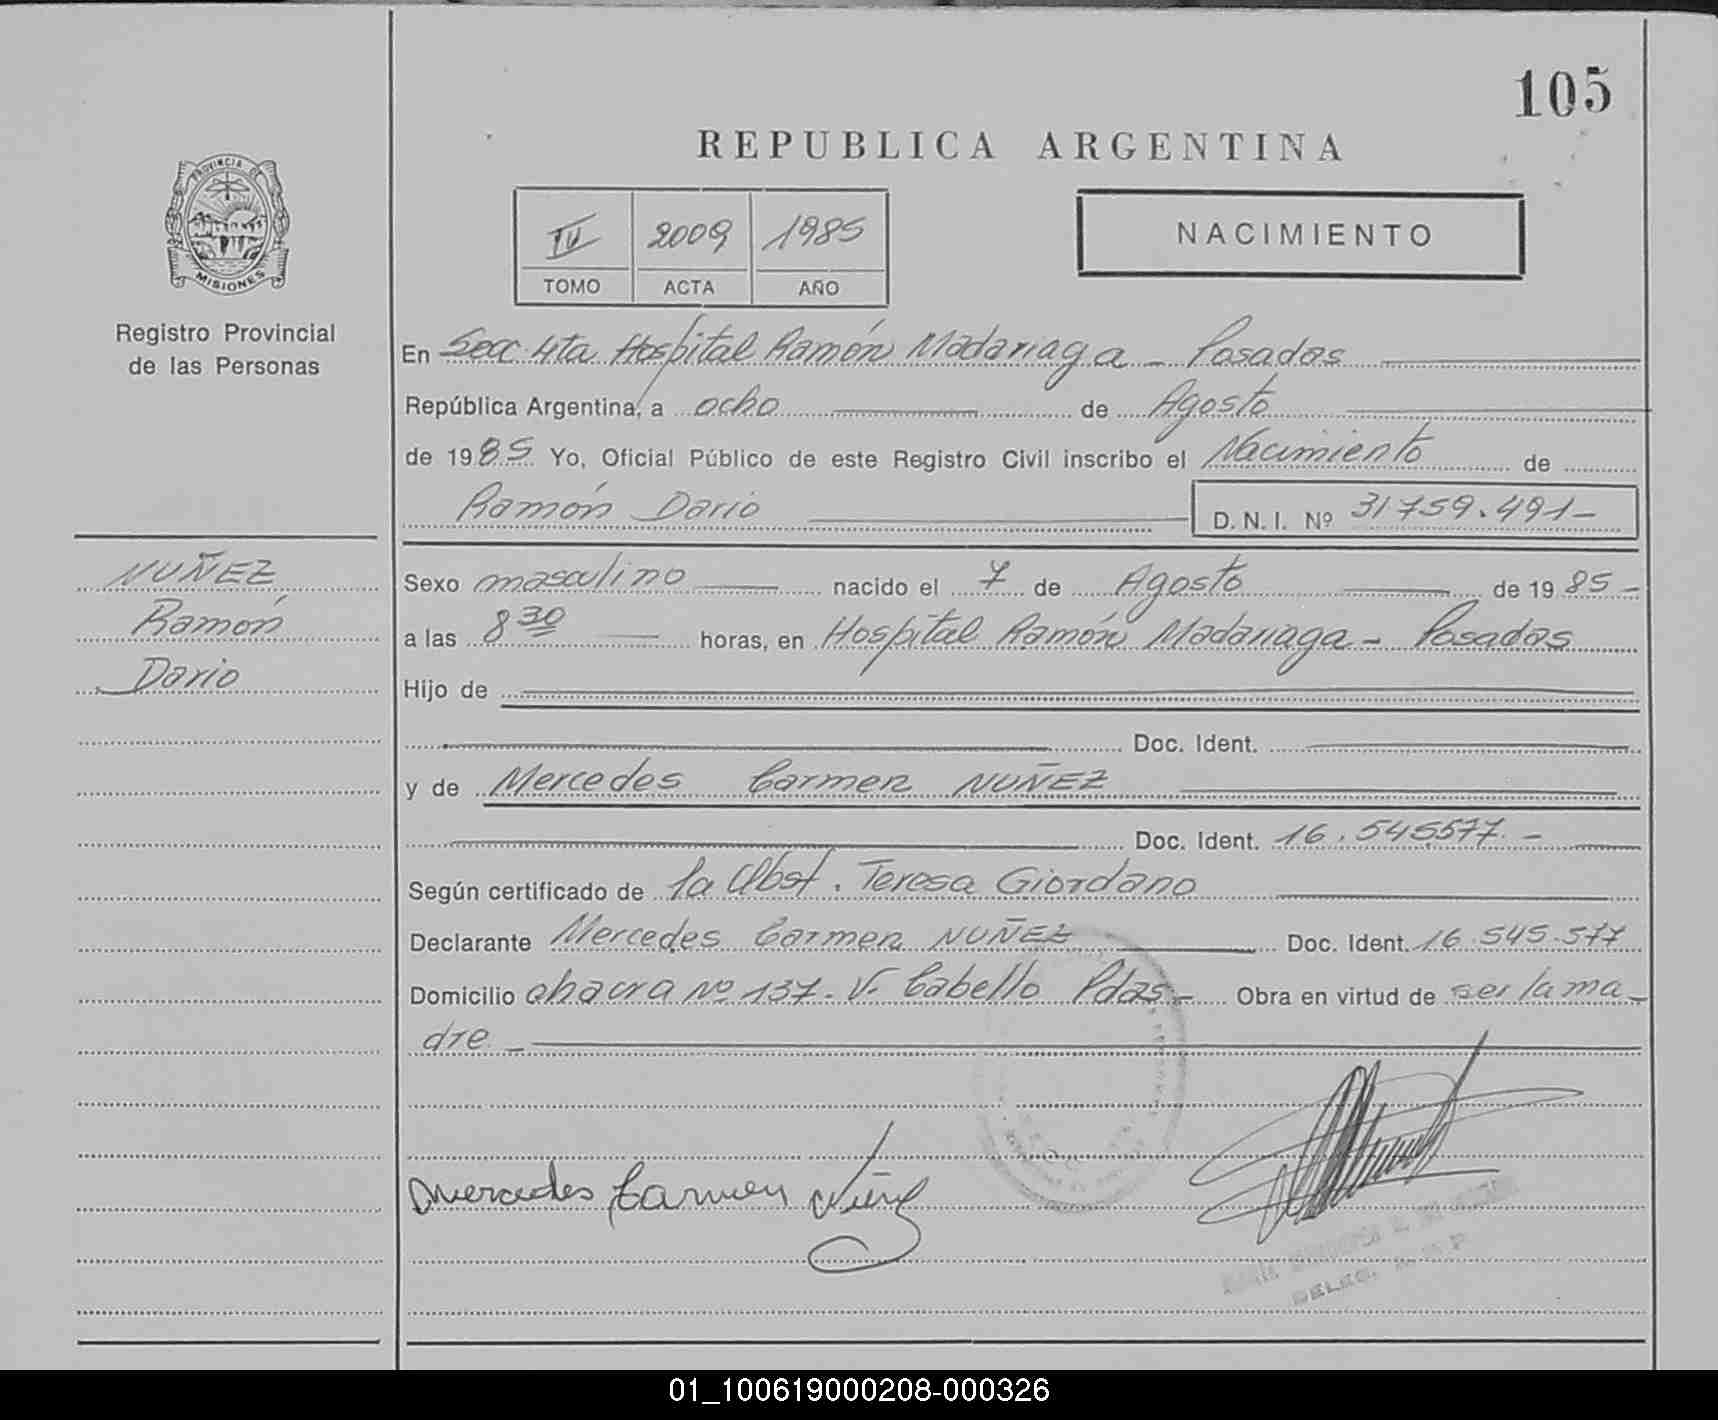 105
REPUBLICA ARGENTINA
PROVINCIA DE
MISIONES
Registro Provincial
de las Personas
IV 2009 1985
TOMO ACTA AÑO
NACIMIENTO
En Secc 4ta Hospital Ramón Madariaga - Posadas
República Argentina, a ocho de Agosto
de 1985 Yo, Oficial Público de este Registro Civil inscribo el Nacimiento de
Ramón Dario D. N. I. Nº 31759.491-
NUÑEZ
Ramón
Dario
Sexo masculino nacido el 7 de Agosto de 1985-
a las 8 30 horas, en Hospital Ramón Madariaga - Posadas
Hijo de
Doc. Ident.
y de Mercedes Carmen NUÑEZ
Doc. Ident. 16.545577.-
Según certificado de la Obst. Teresa Giordano
Declarante Mercedes Carmen NUÑEZ Doc. Ident. 16.545.577
Domicilio chacra Nº 137. V. Cabello Pdas- Obra en virtud de ser la ma-
dre -
Mercedes Carmen Núñez
01_100619000208-000326